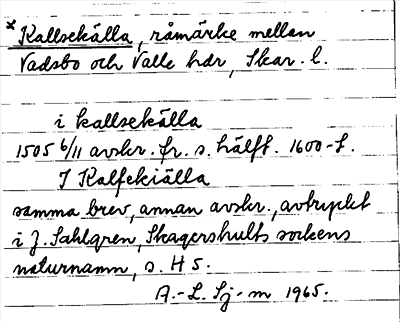 *Kallsekälla, råmärke mellan
Vadsbo och Valle hdr, Skar. l.
i kallsekälla
1505 6/11 avskr. fr. s. hälft. 1600-t.
I Kalfekiälla
samma brev, annan avskr., avtryckt
i J. Sahlgren, Skagershults sockens
naturnamn, s. 45.
A.-L. Sj-m 1965.